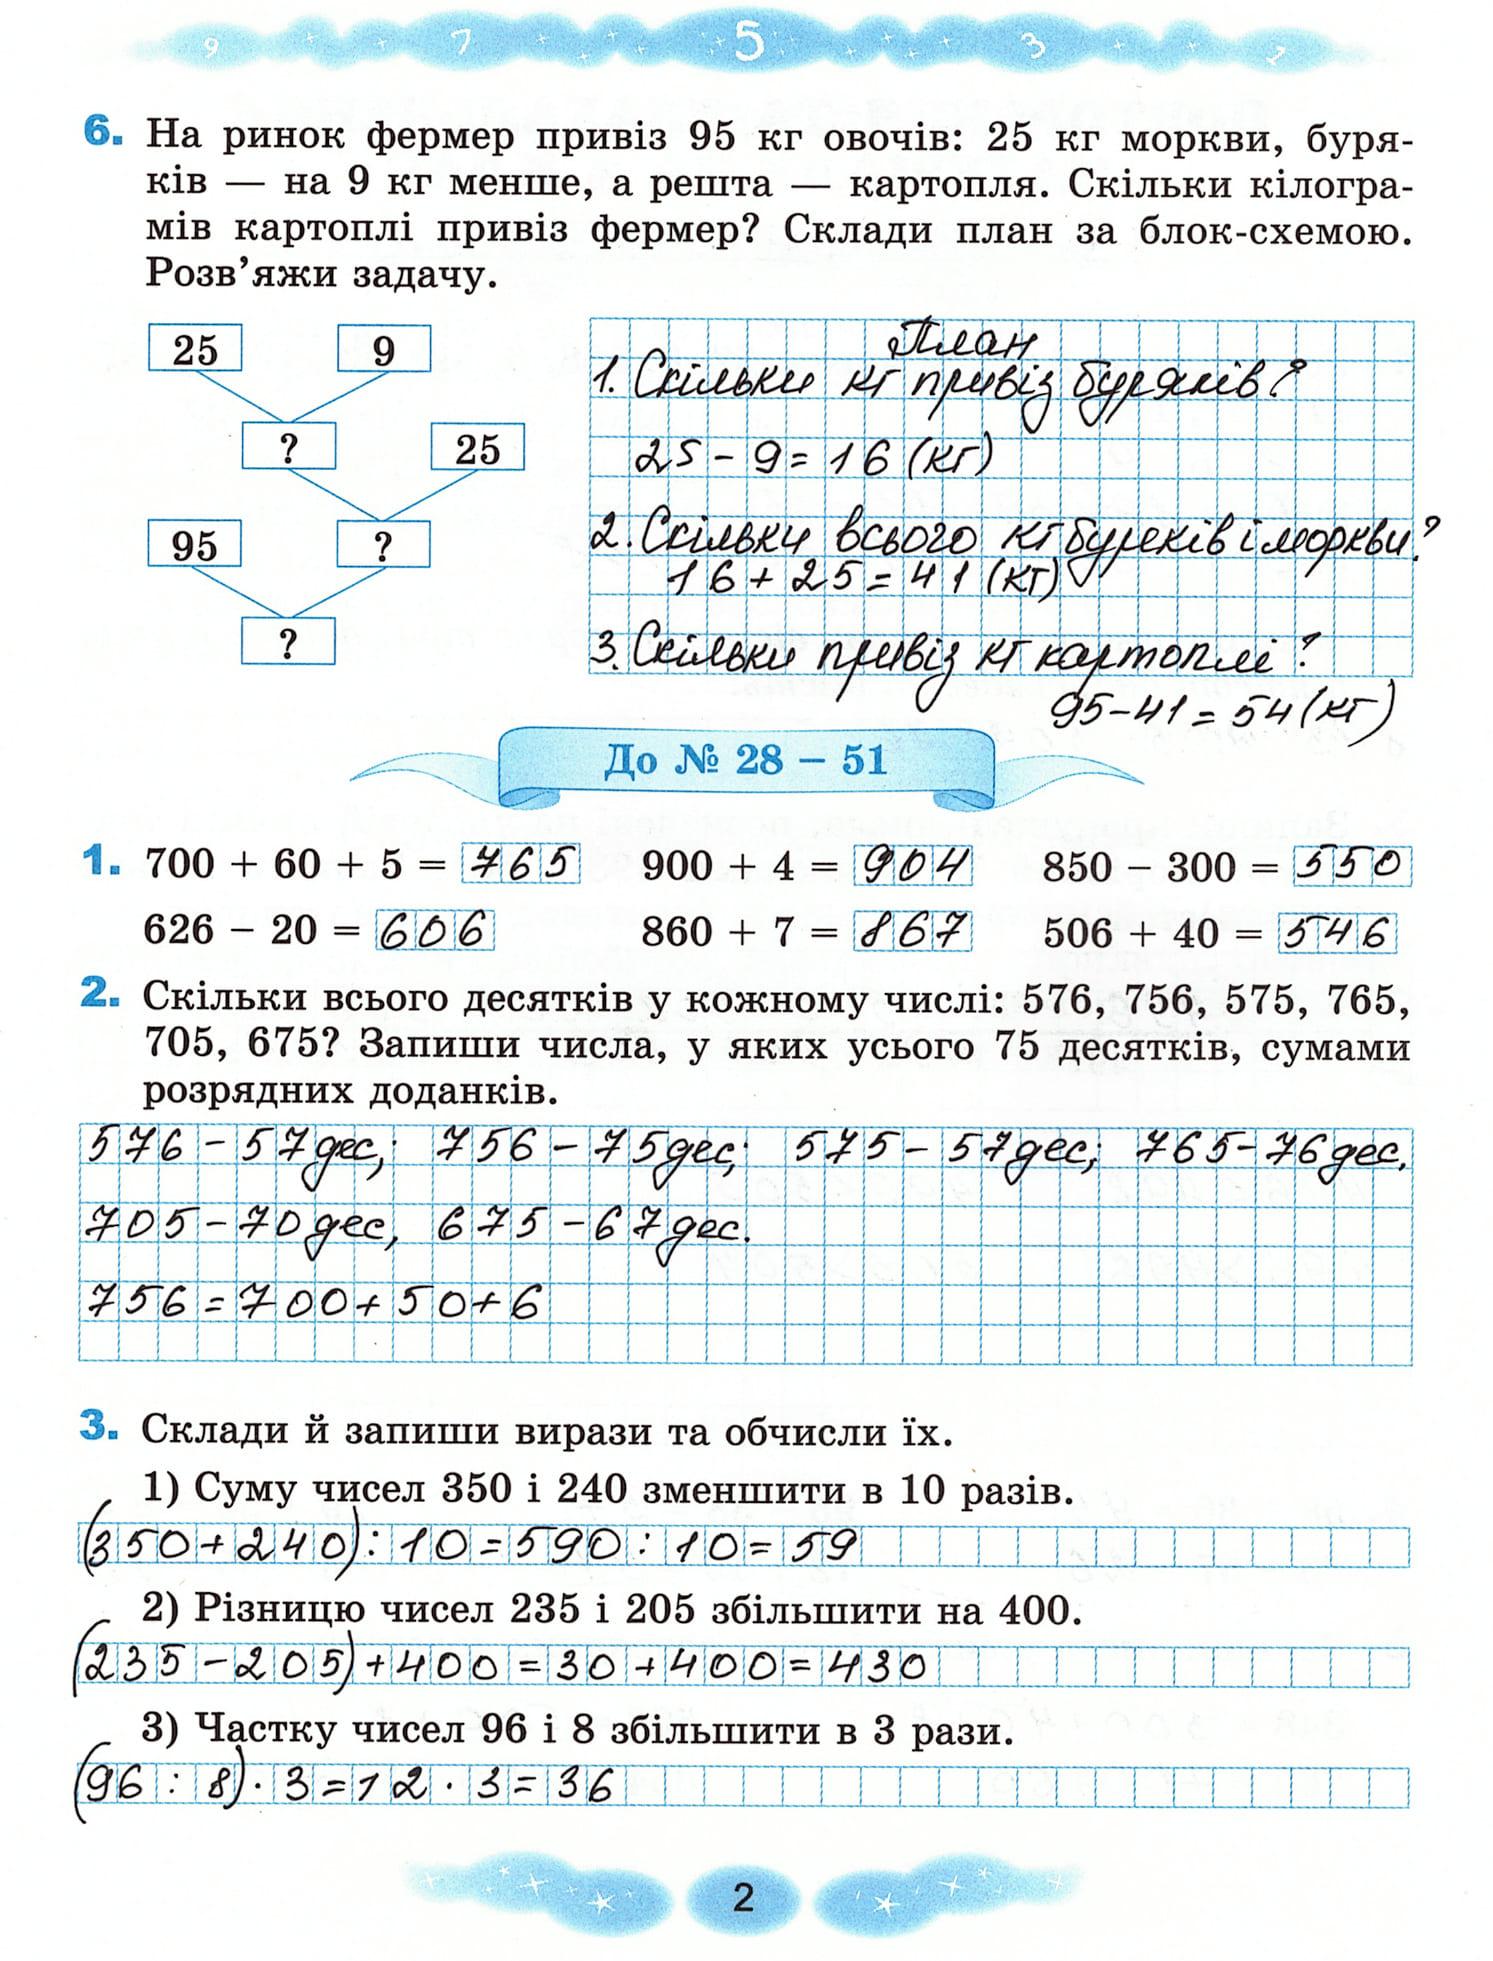 9 7 5 3 1
6. На ринок фермер привіз 95 кг овочів: 25 кг моркви, буря-
ків — на 9 кг менше, а решта — картопля. Скільки кілогра-
мів картоплі привіз фермер? Склади план за блок-схемою.
Розв’яжи задачу.
25 9
? 25
95 ?
?
План
1. Скільки кг привіз буряків?
25 - 9 = 16 (кг)
2. Скільки всього кг буряків і моркви?
16 + 25 = 41 (кг)
3. Скільки привіз кг картоплі?
95 - 41 = 54 (кг)
До № 28 – 51
1. 700 + 60 + 5 = 765 900 + 4 = 904 850 – 300 = 550
626 – 20 = 606 860 + 7 = 867 506 + 40 = 546
2. Скільки всього десятків у кожному числі: 576, 756, 575, 765,
705, 675? Запиши числа, у яких усього 75 десятків, сумами
розрядних доданків.
576 - 57 дес; 756 - 75 дес; 575 - 57 дес; 765 - 76 дес.
705 - 70 дес, 675 - 67 дес.
756 = 700 + 50 + 6
3. Склади й запиши вирази та обчисли їх.
1) Суму чисел 350 і 240 зменшити в 10 разів.
(350 + 240) : 10 = 590 : 10 = 59
2) Різницю чисел 235 і 205 збільшити на 400.
(235 - 205) + 400 = 30 + 400 = 430
3) Частку чисел 96 і 8 збільшити в 3 рази.
(96 : 8) · 3 = 12 · 3 = 36
2